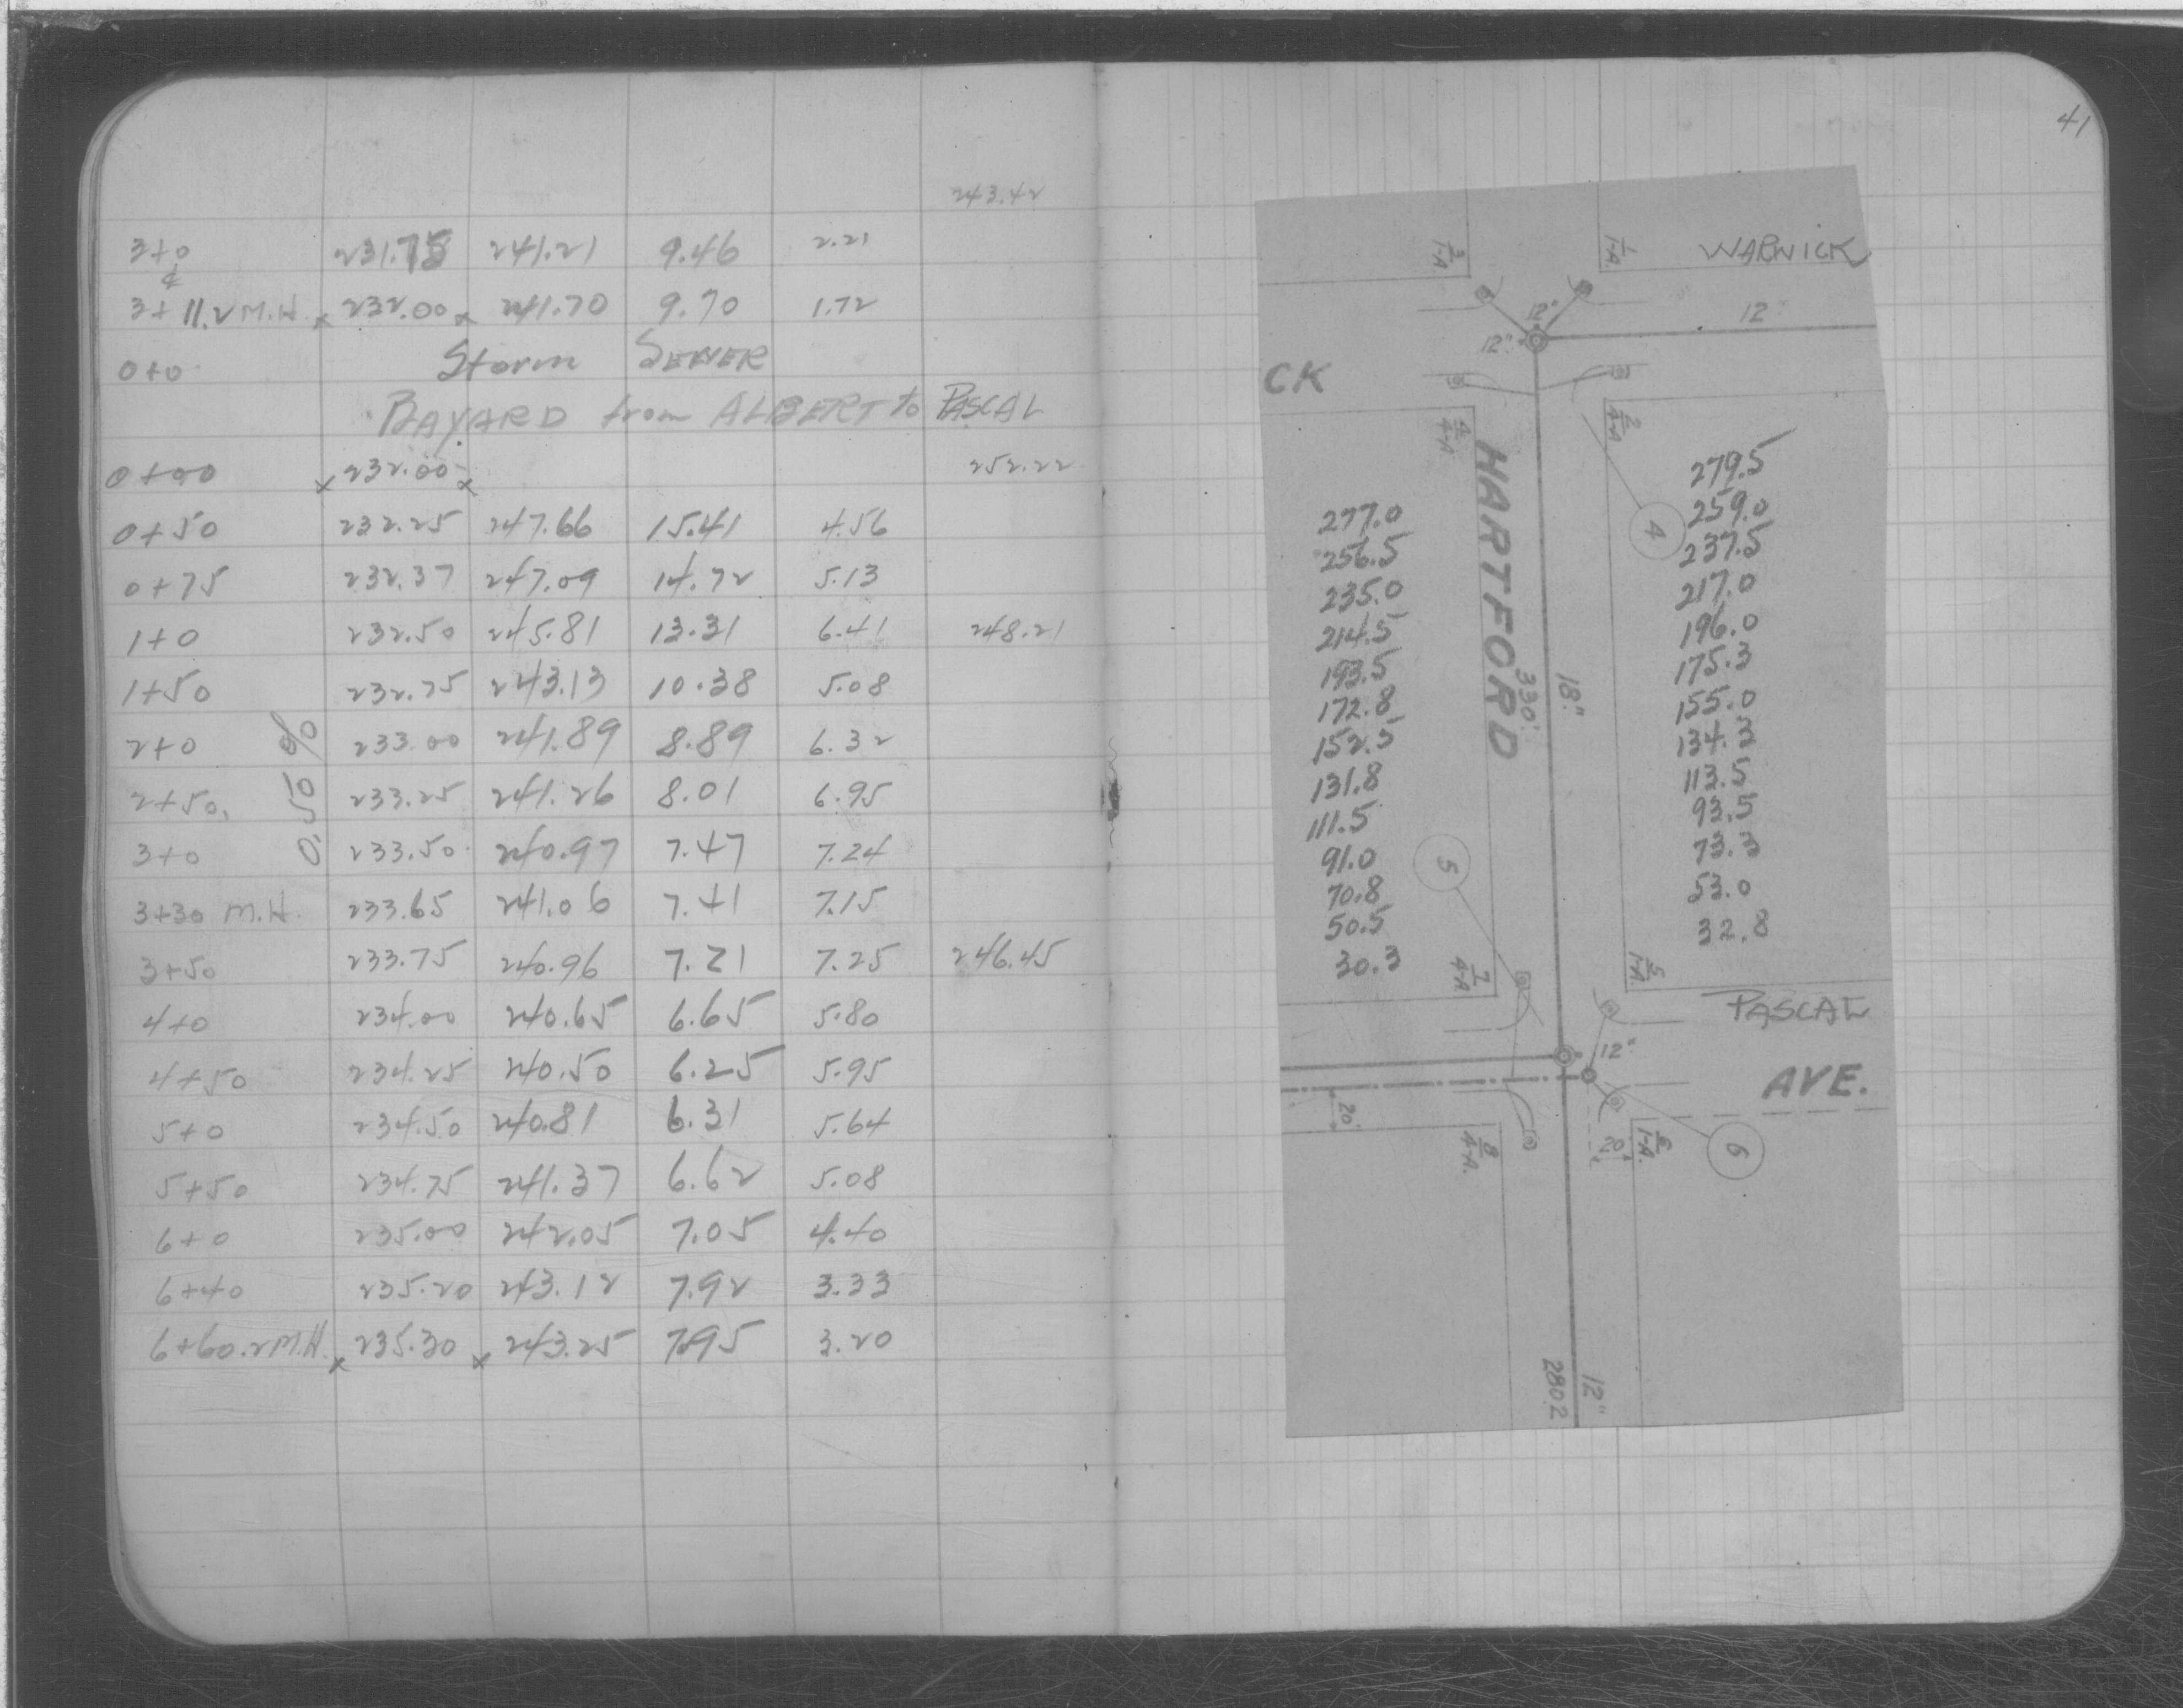 243.42
3+0 231.75 241.21 9.46 2.21
¢
3+11.2 M.H. x 232.00 x 241.70 9.70 1.72
0+0 Storm SEWER
BAYARD from ALBERT to PASCAL
0+00 x 232.00 x 252.22
0+50 232.25 247.66 15.41 4.56
0+75 232.37 247.09 14.72 5.13
1+0 232.50 245.81 13.31 6.41 248.21
1+50 232.75 243.13 10.38 5.08
2+0 233.00 241.89 8.89 6.32
2+50 233.25 241.26 8.01 6.95
0.50 %
3+0 233.50 240.97 7.47 7.24
3+30 M.H. 233.65 241.06 7.41 7.15
3+50 233.75 240.96 7.21 7.25 246.45
4+0 234.00 240.65 6.65 5.80
4+50 234.25 240.50 6.25 5.95
5+0 234.50 240.81 6.31 5.64
5+50 234.75 241.37 6.62 5.08
6+0 235.00 242.05 7.05 4.40
6+40 235.20 243.12 7.92 3.33
6+60.2 M.H. x 235.30 x 243.25 7.95 3.20
41
3/1-A
1/1-A.
WARWICK
12"
12"
12"
CK
4/4-A
2/4-A
HARTFORD
330'
18"
4
277.0
256.5
235.0
214.5
193.5
172.8
152.5
131.8
111.5
91.0
70.8
50.5
30.3
279.5
259.0
237.5
217.0
196.0
175.3
155.0
134.3
113.5
93.5
73.3
53.0
32.8
5
7/4-A
5/1-A
PASCAL
12"
AVE.
20'
8/4-A.
20'
6/1-A.
6
2802
12"